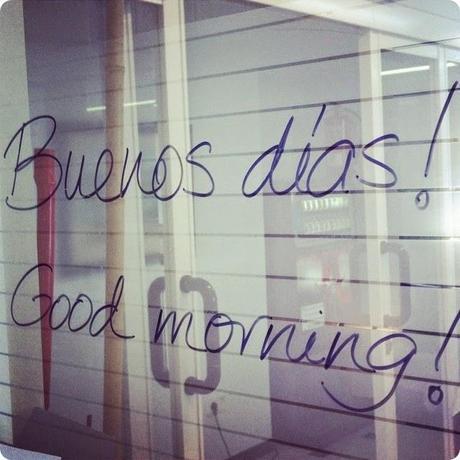 Buenos días!
Good morning!